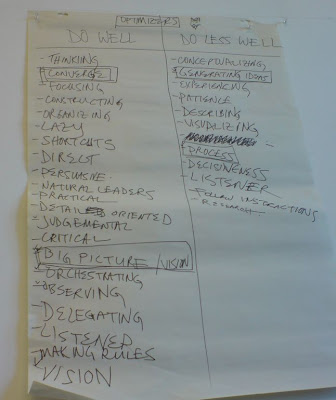 OPTIMIZERS
DO WELL
- THINKING
- CONVERGE
- FOCUSING
- CONSTRUCTING
- ORGANIZING
- LAZY
- SHORTCUTS
- DIRECT
- PERSUASIVE
- NATURAL LEADERS
- PRACTICAL
- DETAIL ORIENTED
- JUDGEMENTAL
- CRITICAL
* BIG PICTURE / VISION
- ORCHESTRATING
- OBSERVING
- DELEGATING
- LISTENER
- MAKING RULES
- VISION
DO LESS WELL
- CONCEPTUALIZING
- GENERATING IDEAS
- EXPERIENCING
- PATIENCE
- DESCRIBING
- VISUALIZING
- PROCESS
- DECISIVENESS
- LISTENER
- FOLLOW INSTRUCTIONS
- RESEARCH